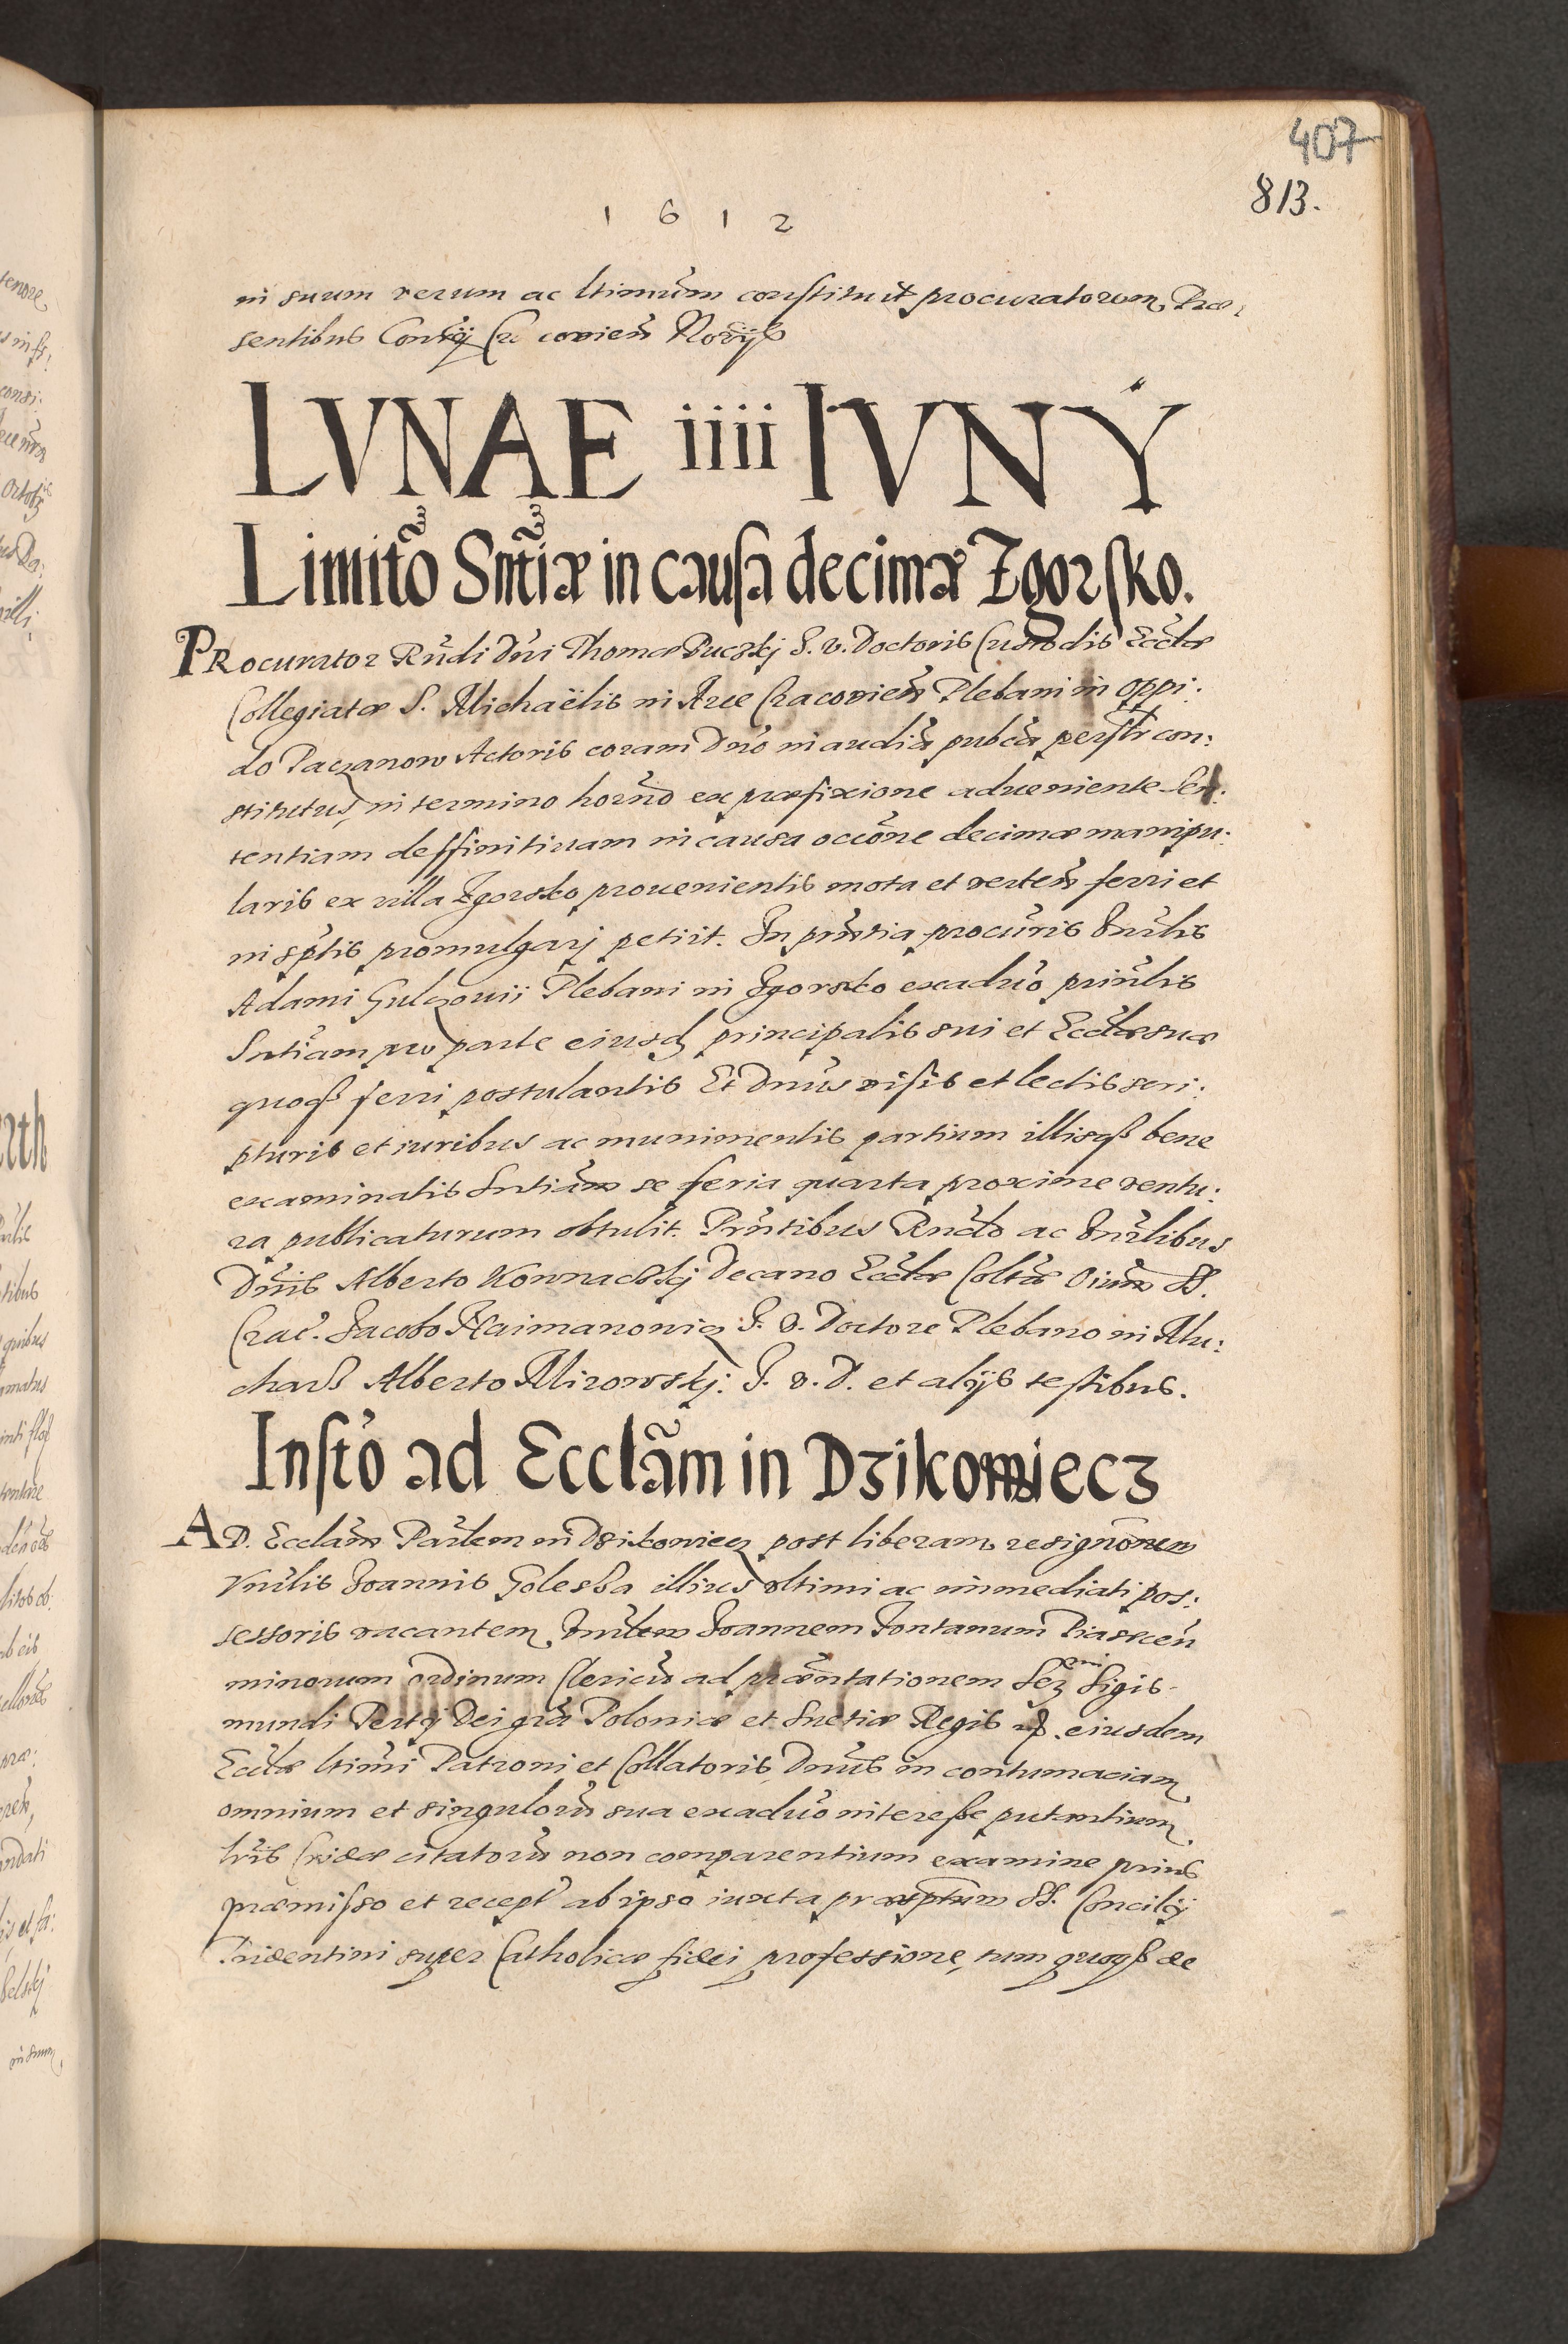 407
813.
1612
in suum verum ac ltimum constituit procuratorem, Præ:
sentibus Consrij Cracovien Notrijs
LVNAE iiii IVNY
Limito Sntiæ in causa decimæ Zgorsko.
PRocurator Rndi Dni Thomæ Puczkj I. v. Doctoris Custodis Ecclæ
Collegiatæ S. Michaëlis in Arce Cracovien Plebani in oppi:
do Paczanow Actoris coram Dno in audia publca persltr con:
stitutus, in termino horno ex præfixione adueniente Sen:
tentiam deffinitiuam in causa occone decimæ manipu:
laris ex villa Zgorsko prouenientis mota et verten ferri et
in sptis promulgarj petiit. In prntia procuris Vnrlis
Adami Gulczouii Plebani in Zgorsko exaduo prinlis
Sntiam pro parte eiusd principalis sui et Ecclæ suæ
quoqz ferri postulantis Et Dnus visis et lectis scri:
pturis et iuribus ac munimentis partium illisqz bene
examinatis Sntiam se feria quarta proxime ventu:
ra publicaturum obtulit. Prntibus Rndo ac Vnrlibus
Dnis Alberto Kownaczkj Decano Ecclæ Coltæ Oium SS.
Crac. Jacobo Haimanowicz I. v. Doctore Plebano in Mu:
charz Alberto Mirowskj: I. v. D. et alijs testibus.
Insto ad Ecclam in Dzikowiecz
AD. Ecclam Parlem in Dzikowiecz post liberam resignonem
Vnrlis Joannis Golesba illius vltimi ac immediati pos:
sessoris vacantem, Vnrlem Joannem Fontanum Piascen
minorum ordinum Clericu ad præntationem Sermi Sigis-
mundi Tertij Dei gra Poloniæ et Suetiæ Regis eiusdem
Ecclæ ltimi Patroni et Collatoris Dnus in contumaciam
omnium et singuloru sua exaduo interesse putantium
lris Cridæ citatoru non comparentium examine prius
præmisso et recept ab ipso iuxta præsptum SS. Concilij
Tridentini super Catholicæ fidei professione, tum quoqz de